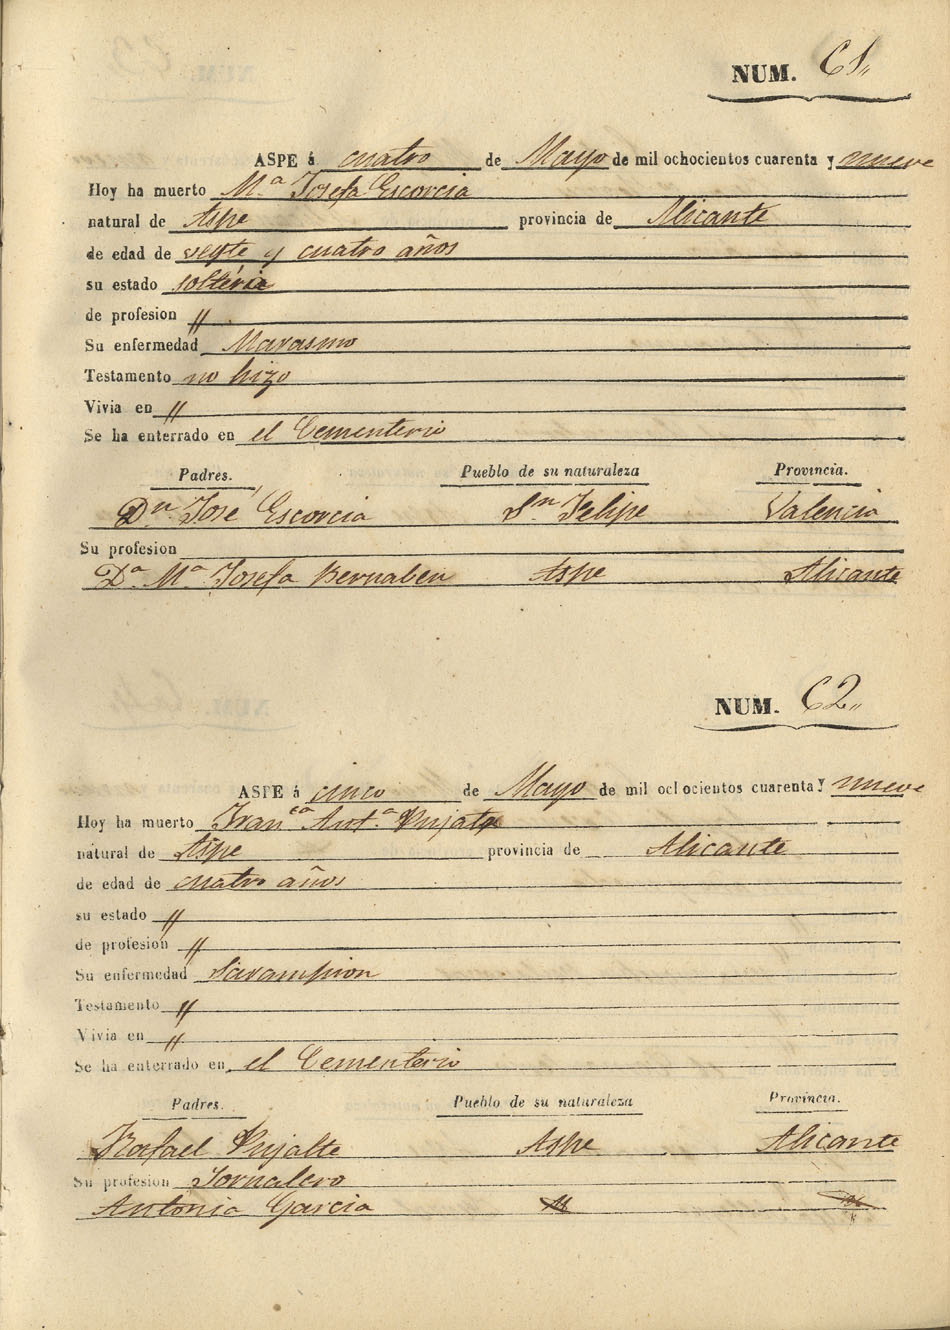 NUM. 61,,
ASPE á cuatro de Mayo de mil ochocientos cuarenta y nueve
Hoy ha muerto Mª Josefa Escorcia
natural de Aspe provincia de Alicante
de edad de veyte y cuatro años
su estado soltera
de profesion "
Su enfermedad Marasmo
Testamento no hizo
Vivia en "
Se ha enterrado en el Cementerio
Padres. Pueblo de su naturaleza Provincia.
Dn José Escorcia Sn Felipe Valencia
Su profesion
Dª Mª Josefa Bernabeu Aspe Alicante
NUM. 62,,
ASPE á cinco de Mayo de mil ochocientos cuarenta y nueve
Hoy ha muerto Franca Antª Pujalte
natural de Aspe provincia de Alicante
de edad de cuatro años
su estado "
de profesion "
Su enfermedad Sarampion
Testamento "
Vivia en "
Se ha enterrado en el Cementerio
Padres. Pueblo de su naturaleza Provincia.
Rafael Pujalte Aspe Alicante
Su profesion Jornalero
Antonia Garcia